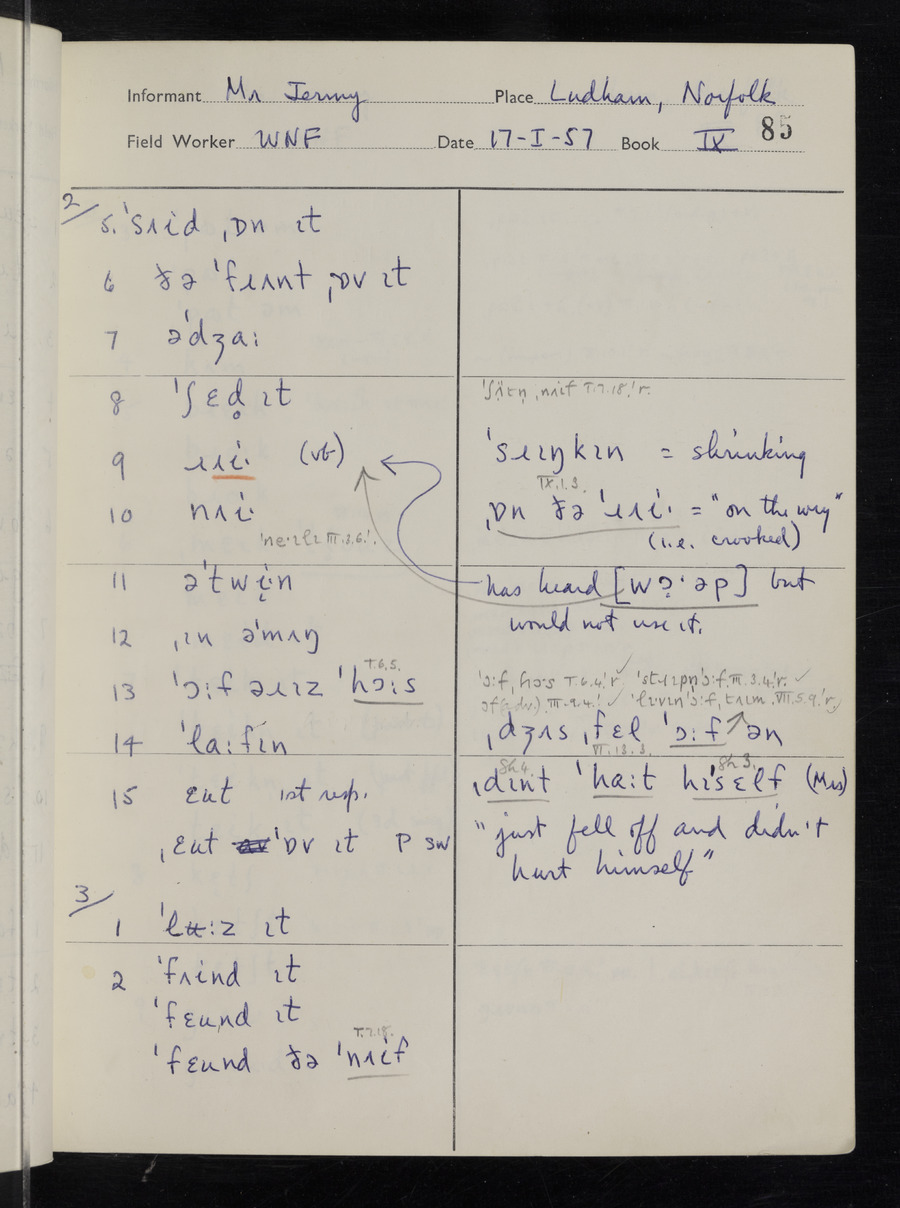 Informant Mr Jermy Place Ludham, Norfolk
Field Worker WNF Date 17-I-57 Book IX 85
2/
5. ˈsʌid ˌɒn ɪt
6 ðə ˈfɹʌnt ˌɒv ɪt
7 əˈdʒaː
8 ˈʃɛd̥ ɪt
9 ɹʌi· (vb)
10 nʌi·
ˈne·ɪlɪ III.3.6.!.
11 əˈtwi̞n
12 ˌɪn əˈmʌŋ
13 ˈɔːf əɹɪz ˈhɔːs
T.6.5.
14 ˈlaːfɪn
15 ɛut 1st resp.
ˌɛut ˈɒv ɪt P SW
3/
1 ˈlʉːz ɪt
2 ˈfʌind ɪt
ˈfɛund ɪt
T.7.18.
ˈfɛund ðə ˈnʌif
ˌnʌif T.7.18.!r.
ˈsɹɪŋkɪn = shrinking
IX.1.3.
ˌɒn ðə ˈɹʌi· = "on the wry"
(i.e. crooked)
has heard [wɔ̣ˑəp] but
would not use it.
ˈɔːf, hɔs T.6.4.!r ˈstɹɪpn̩ ˈɔːf. III.3.4.!r.
ɔf (adv.). III.9.4.! ˈlɪvɪn ˈɔːf, tɹɪm. VII.5.9.!r
ˌdʒʌs ˌfɛl ˈɔːf ən
VI.13.3. Sh 4. Sh 3.
ˌdɪnt ˈhaːt hɪˈsɛlf (Mrs)
"just fell off and didn't
hurt himself"